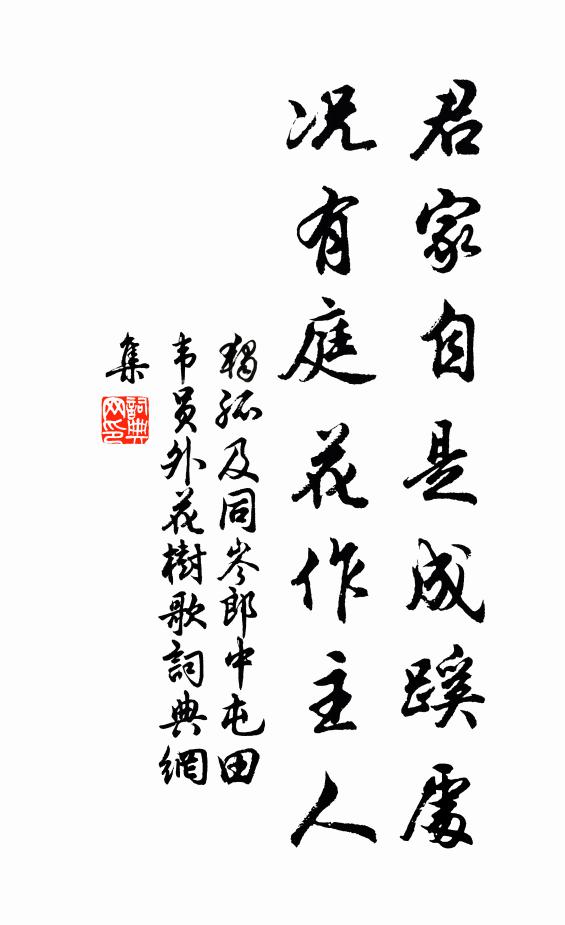 君家自是成蹊處
况有庭花作主人
獨孤及同岑郎中屯田
韦員外花樹歌詞典網
集
詞典网印